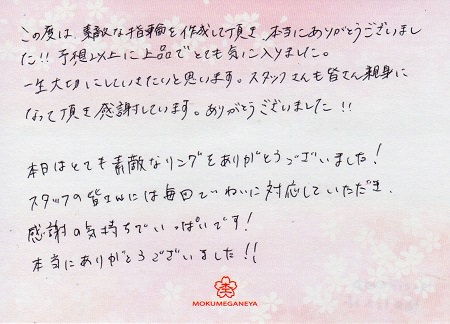 この度は、素敵な指輪を作成して頂き、本当にありがとうございまし
た!! 予想以上に上品でとても気に入りました。
一生大切にしていきたいと思います。スタッフさんも皆さん親身に
なって頂き感謝しています。ありがとうございました!!
本日はとても素敵なリングをありがとうございました!
スタッフの皆さんには毎回ていねいに対応していただき、
感謝の気持ちでいっぱいです!
本当にありがとうございました!!
MOKUMEGANEYA